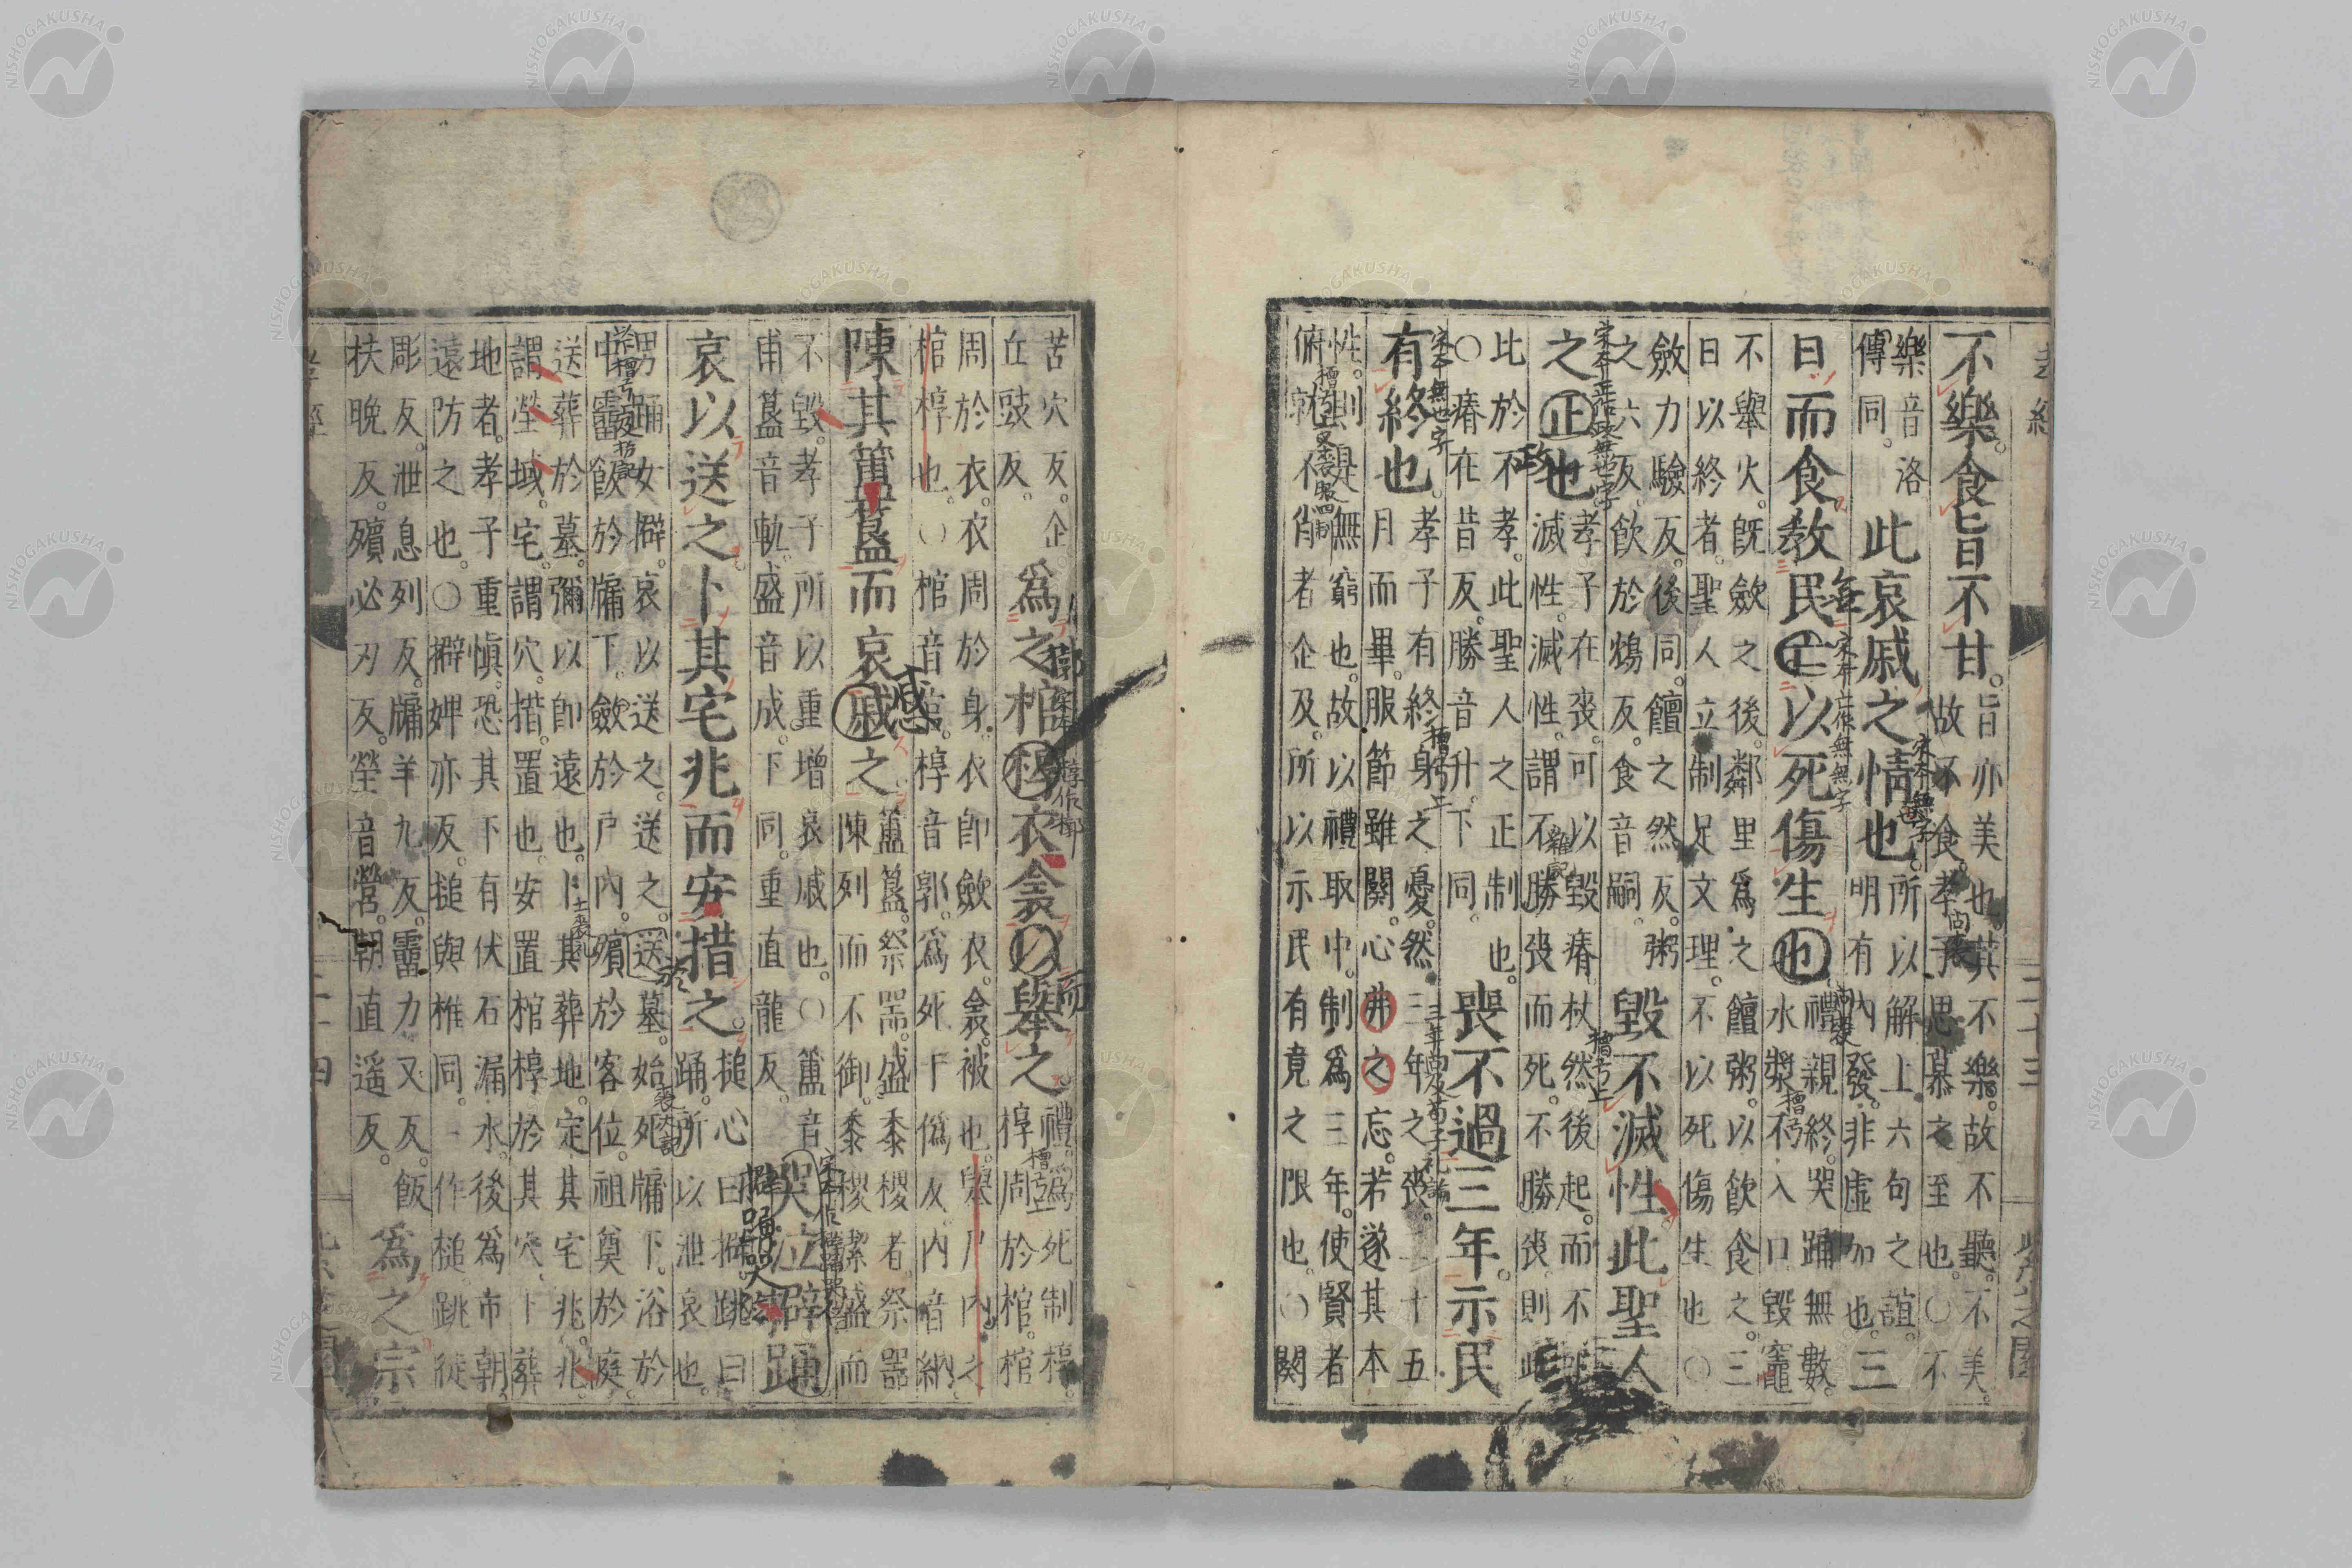 不樂食旨不甘。旨亦美也。其不樂。故不聽。不美。
故不食。孝子思慕之至也。○不
樂音洛
傳同。此哀戚之情也。所以解上六句之誼。
明有內發。非虛加也。三
日而食教民亡以死傷生也禮親終。哭踊無數。
水漿不入口。毀竈
不舉火。既斂之後。鄰里爲之饘粥。以飲食之。三
日以終者。聖人立制足文理。不以死傷生也。○
斂力驗反。後同。饘之然反。粥
之六反。飲於鴆反。食音嗣毀不滅性此聖人
之正也孝子在喪。可以毀瘠。杖然後起。而不可
滅性。滅性。謂不勝喪而死。不勝喪。則此
比於不孝。此聖人之正制也。
○瘠在昔反。勝音升。下同。喪不過三年。示民
有終也。孝子有終身之憂。然三年之喪。二十五
月而畢。服節雖闋。心弗之忘。若遂其本
性。則是無窮也。故以禮取中。制爲三年。使賢者
俯就。不肖者企及。所以示民有竟之限也。○闋
苦穴反。企
丘豉反。爲之棺椁衣衾以舉之。禮。爲死制椁。
椁周於棺。棺
周於衣。衣周於身。衣即斂衣。衾。被也。舉尸內之
棺椁也。○棺音官。椁音郭。爲死于僞反。內音納
陳其簠簋而哀戚之。簠簋。祭器。盛黍稷者。祭器
陳列而不御。黍稷潔盛而
不毀。孝子所以重增哀戚也。○簠音
甫簋音軌。盛音成。下同。重直龍反。哭泣擗踊
哀以送之。卜其宅兆而安措之。搥心曰擗。跳曰
踊。所以泄哀也。
男踊女擗。哀以送之。送之。送墓。始死牖下。浴於
中霤。飯於牖下。斂於戶內。殯於客位。祖奠於庭。
送葬於墓。彌以即遠也。卜其葬地。定其宅兆。兆
謂塋域。宅。謂穴。措。置也。安置棺椁於其穴。卜葬
地者。孝子重慎。恐其下有伏石漏水。後爲市朝。
遠防之也。○擗婢亦反。搥與椎同。一作搥。跳徒
彫反。泄息列反。牖羊九反。霤力又反。飯
扶晚反。殯必刃反。塋音營。朝直遙反。爲之宗